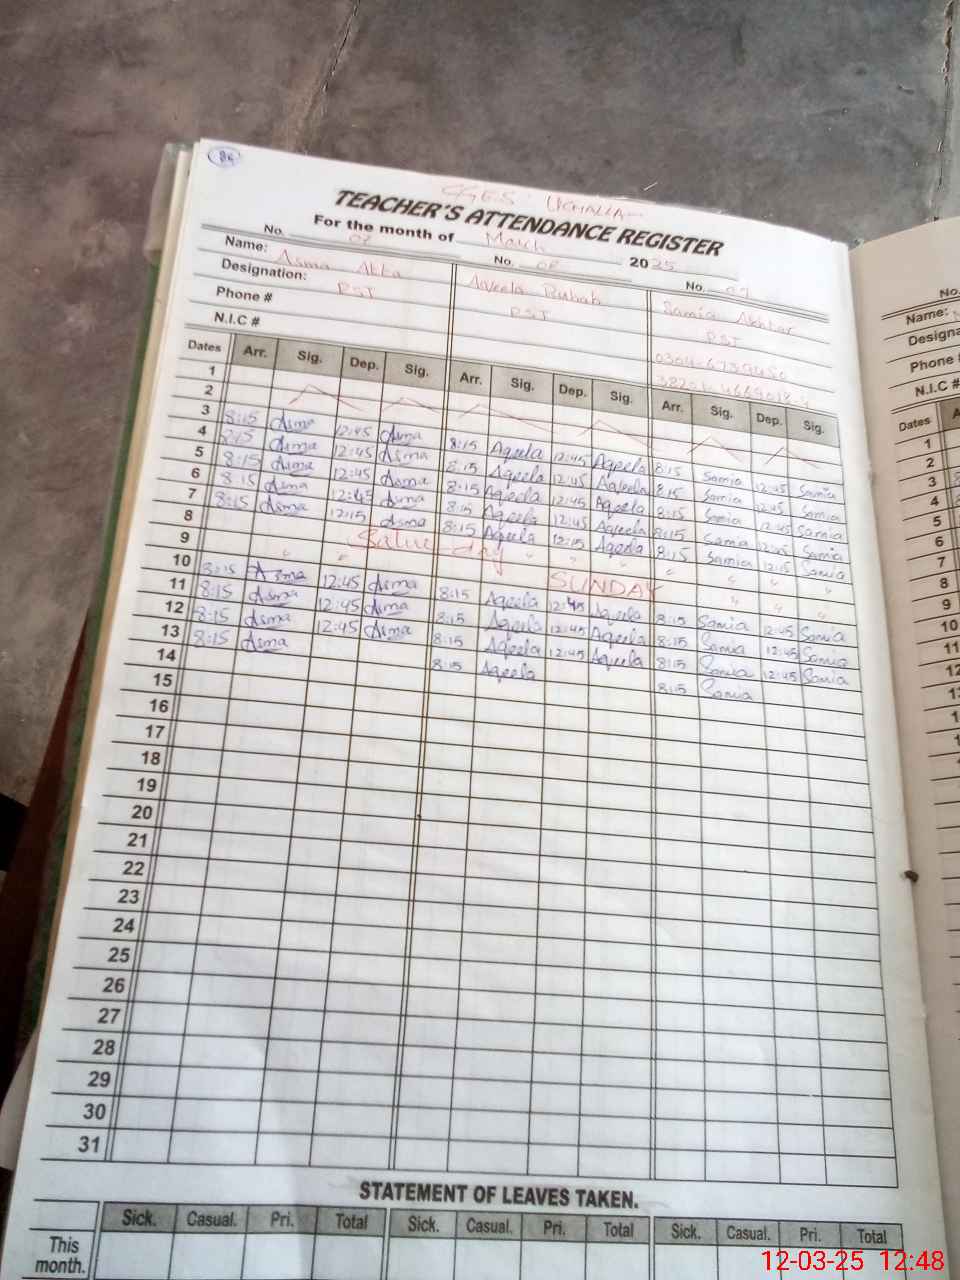 84
GGES UCHALLA
TEACHER'S ATTENDANCE REGISTER
For the month of March 2025
No. 07 No. 08 No. 09
Name: Asma Aqeela Rubab Samia Akhtar
Designation: PST PST PST
Phone #
N.I.C #
Dates Arr. Sig. Dep. Sig. Arr. Sig. Dep. Sig. Arr. Sig. Dep. Sig.
1
2
3 8:15 Asma 12:45 Asma 8:15 Aqeela 12:45 Aqeela 8:15 Samia 12:45 Samia
4 8:15 Asma 12:45 Asma 8:15 Aqeela 12:45 Aqeela 8:15 Samia 12:45 Samia
5 8:15 Asma 12:45 Asma 8:15 Aqeela 12:45 Aqeela 8:15 Samia 12:45 Samia
6 8:15 Asma 12:45 Asma 8:15 Aqeela 12:45 Aqeela 8:15 Samia 12:45 Samia
7 8:15 Asma 12:15 Asma 8:15 Aqeela 12:15 Aqeela 8:15 Samia 12:15 Samia
8 Saturday
9 " " SUNDAY " " "
10 8:15 Asma 12:45 Asma 8:15 Aqeela 12:45 Aqeela 8:15 Samia 12:45 Samia
11 8:15 Asma 12:45 Asma 8:15 Aqeela 12:45 Aqeela 8:15 Samia 12:45 Samia
12 8:15 Asma 12:45 Asma 8:15 Aqeela 12:45 Aqeela 8:15 Samia 12:45 Samia
13 8:15 Asma 8:15 Aqeela 8:15 Samia
14
15
16
17
18
19
20
21
22
23
24
25
26
27
28
29
30
31
STATEMENT OF LEAVES TAKEN.
Sick. Casual. Pri. Total Sick. Casual. Pri. Total Sick. Casual. Pri. Total
This month.
No.
Name:
Phone
N.I.C #
Dates
1
2
3
4
5
6
7
8
9
10
11
12
12-03-25 12:48